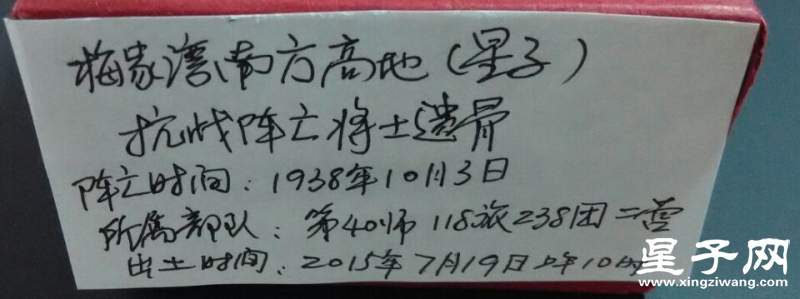 梅家湾南方高地(星子)
抗战阵亡将士遗骨
阵亡时间:1938年10月3日
所属部队:第40师 118旅238团二营
出土时间:2015年7月19日上午10时
星子网
www.xingziwang.com